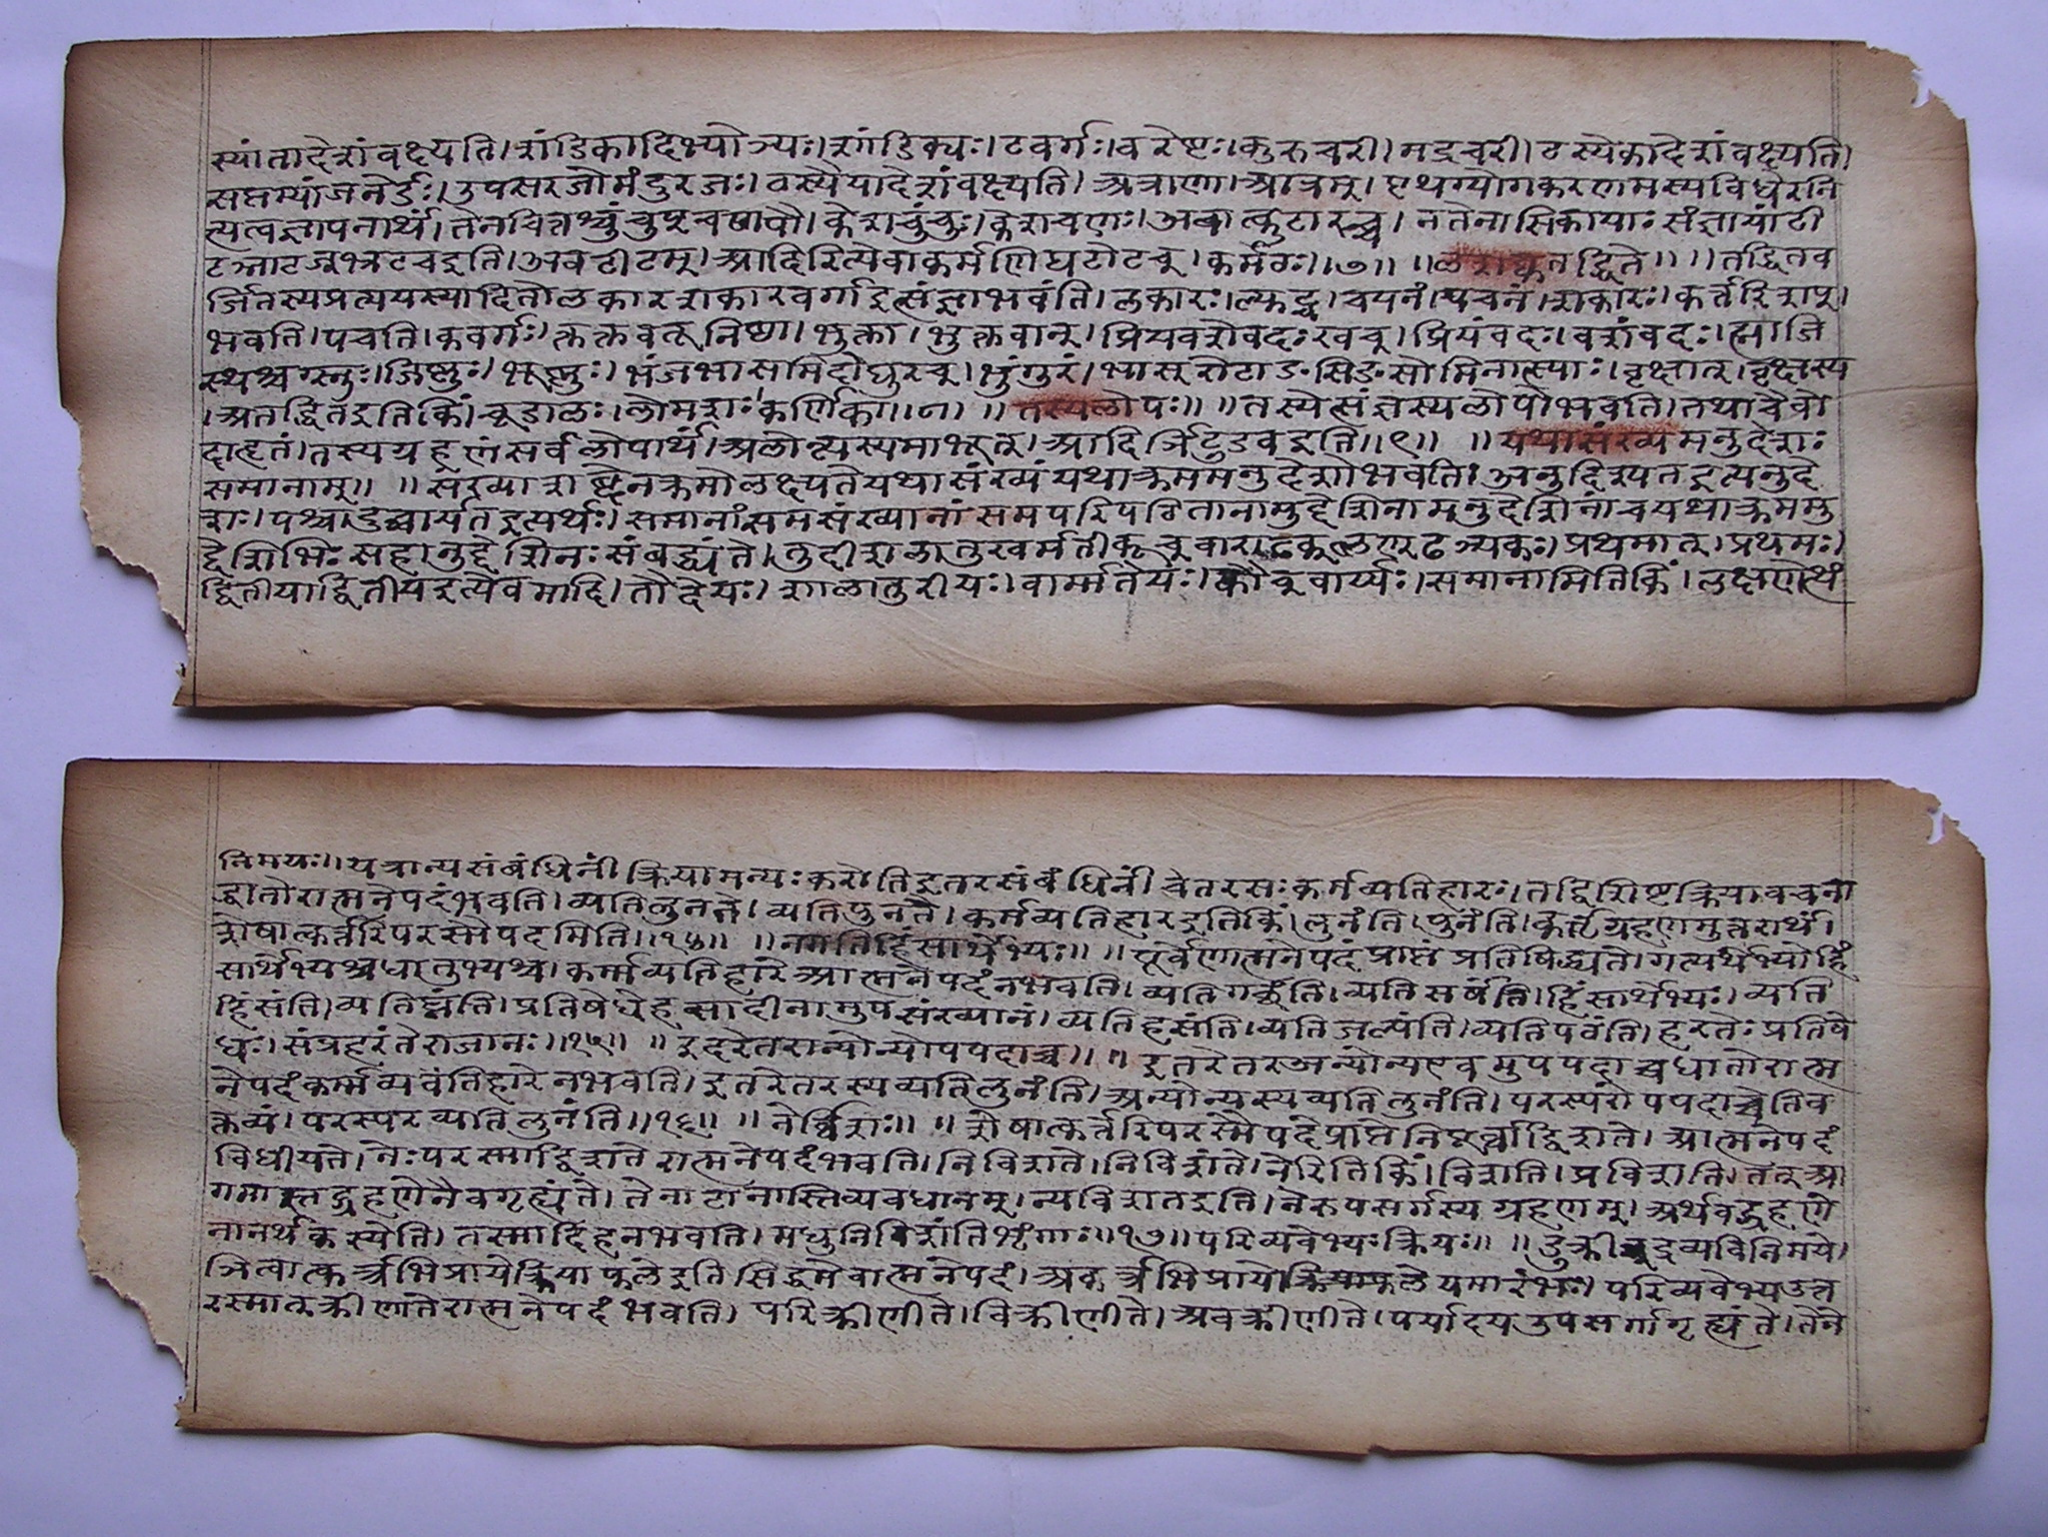 स्यांतादेशंवक्ष्यति।शंडिकादिभ्योञ्यः।शांडिक्यः।टवर्गः।चरेष्टः।कुरुचरी।मद्रचरी।ठस्येकादेशंवक्ष्यति।
सप्तम्यांजनेर्डः।उपसरजोमंदुरजः।ढस्यैयादेशंवक्ष्यति। पृथग्योगकरणमस्यविधेरनि
त्यत्वज्ञापनार्थं।तेनवित्तश्चुंचुप्चणपौ।केशचुंचुः।केशचणः।अवात्कुटारच्च। नतेनासिकायाः संज्ञायांटी
टञ्नाटज्भ्रटचइति।अवटीटम्।आदिरित्येवाकर्मणिघटोटच्।कर्मठः।।७।। ।।लशक्वतद्धिते।। ।।तद्धितव
र्जितस्यप्रत्ययस्यादितोलकारशकारकवर्गाइत्संज्ञाभवंति।लकारः।ल्युट्च।चयनं।पचनं।शकारः।कर्त्तरिशप्।
भवति।पचति।कवर्गः।क्तक्तवतूनिष्ठा।भुक्तः।भुक्तवान्।प्रियवशेवदःखच्।प्रियंवदः।वशंवदः।ग्लाजि
स्थश्चग्स्नुः।जिष्णुः।भूष्णुः।भंजभासमिदोघुरच्।भंगुरं।भासुरंटाङसिङसामिनात्स्याः।वृक्षात्।वृक्षस्य
।अतद्धितइतिकिं।चूडालः।लोमशः।कर्णिका।।८।। ।।तस्यलोपः।। ।।तस्येत्संज्ञस्यलोपोभवति।तथाचैवो
दाहृतं।तस्यग्रहणंसर्वलोपार्थं।अलोन्त्यस्यमाभूत्।आदिर्ञिटुडवइति।।९।। ।।यथासंख्यमनुदेशः
समानाम्।। ।।संख्याशब्देनक्रमोलक्ष्यतेयथासंख्यंयथाक्रममनुदेशोभवति।अनुदिश्यतइत्यनुदे
शः।पश्चादुच्चार्यतइत्यर्थः।समानांसमसंख्यानांसमपरिपठितानामुद्देशिनामनुदेशिनांचयथाक्रममु
द्देशिभिःसहानुद्देशिनःसंबद्ध्यंते।तूदीशलातुरवर्मतीकूचवाराड्ढक्छण्ढञ्यकः।प्रथमात्।प्रथमः।
द्वितीयाद्द्वितीयइत्येवमादि।तौदेयः।शालातुरीयः।वार्मतेयः।कौचवार्य्यः।समानामितिकिं।लक्षणेत्थं
निमयः।।यत्रान्यसंबंधिनीं क्रियामन्यःकरोतिइतरसंबंधिनीं चेतरसःकर्मव्यतिहारः।तद्विशिष्टक्रियावचना
द्धातोरात्मनेपदंभवति।व्यतिलुनते।व्यतिपुनते।कर्मव्यतिहारइतिकिं।लुनंति।पुनंति।कर्तृग्रहणमुत्तरार्थं।
शेषात्कर्त्तरिपरस्मैपदमिति।।१४।। ।।नगतिहिंसार्थेभ्यः।। ।।पूर्वेणात्मनेपदंप्राप्तं प्रतिषिद्ध्यते।गत्यर्थेभ्योहिं
सार्थेभ्यश्चधातुभ्यश्च।कर्मव्यतिहारेआत्मनेपदंनभवति।व्यतिगच्छंति।व्यतिसर्पंति।हिंसार्थेभ्यः।व्यति
हिंसंति।व्यतिघ्नंति।प्रतिषेधेहसादीनामुपसंख्यानं।व्यतिहसंति।व्यतिजल्पंति।व्यतिपठंति।हरतेः प्रतिषे
धः।संप्रहरंतेराजानः।।१५।। ।।इतरेतरान्योन्योपपदाच्च।। ।।इतरेतरअन्योन्यएवमुपपदाच्चधातोरात्म
नेपदंकर्मव्यवतिहारेनभवति।इतरेतरस्यव्यतिलुनंति।अन्योन्यस्यव्यतिलुनंति।परस्परोपपदाच्चेतिव
क्तव्यं।परस्परव्यतिलुनंति।।१६।। ।।नेर्विशः।। ।।शेषात्कर्त्तरिपरस्मैपदेप्राप्तेनिपूर्वाद्विशते।आत्मनेपदं
विधीयते।नेःपरस्माद्विशतेरात्मनेपदंभवति।निविशते।निविशंते।नेरितिकिं।विशति।प्रविशति।तत्आ
गमास्तद्ग्रहणेनैवगृह्यंते।तेनाटानास्तिव्यवधानम्।न्यविशतइति।नेरुपसर्गस्यग्रहणम्।अर्थवद्ग्रहणे
नानर्थकस्येति।तस्मादिहनभवति।मधुनिविशंतिभृंगाः।।१७।।परिव्यवेभ्यःक्रियः।। ।।डुक्रीञ्द्रव्यविनिमये।
ञित्वात्कर्त्रभिप्रायेक्रियाफलेइतिसिद्धमेवात्मनेपदं।अकर्त्रभिप्रायेक्रियाफलेयमारंभः।परिव्यवेभ्यउत्त
रस्मात्क्रीणातेरात्मनेपदंभवति। परिक्रीणीते।विक्रीणीते।अवक्रीणीते।पर्यादयउपसर्गागृह्यंते।तेने